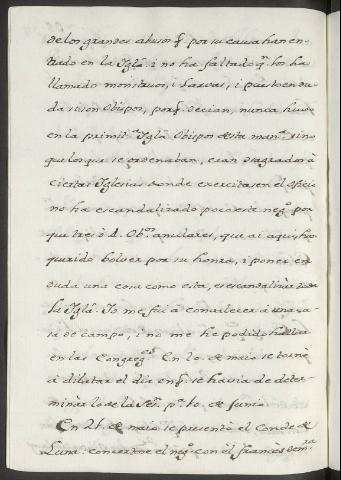 de los grandes abusos q̃. por su causa han en-
trado en la Iglã. i no ha faltado qⁿ. los ha
llamado monstruos, i Larvas, i puesto en du-
da si son Obispos, porq̃. decian, nunca huvo
en la primitᵃ. Iglã. Obispos desta manᵃ. sino
que los que se ordenaban, eran consagrados à
ciertas Iglesias donde exercitasen el oficio
no ha escandalizado poco este negᵒ. por
que tres ò 4. Obᵒˢ. anulares, que ai aqui, han
querido bolver por su honra, i poner en
duda una cosa como esta, es escandalizàr toda
la Iglã. Io me fui à convalecer à una ca-
sa de campo, i no me he podido hallar
en las Congregᵉˢ. En 20. de maio se tornò
à dilatar el dia en q̃. se havia de deter-
minàr lo de la Seⁿ. pᵃ. 10. de Junio
En 21. de maio se presentò el Conde de
Luna: concertose el negᵒ. con èl francès demʳᵃ